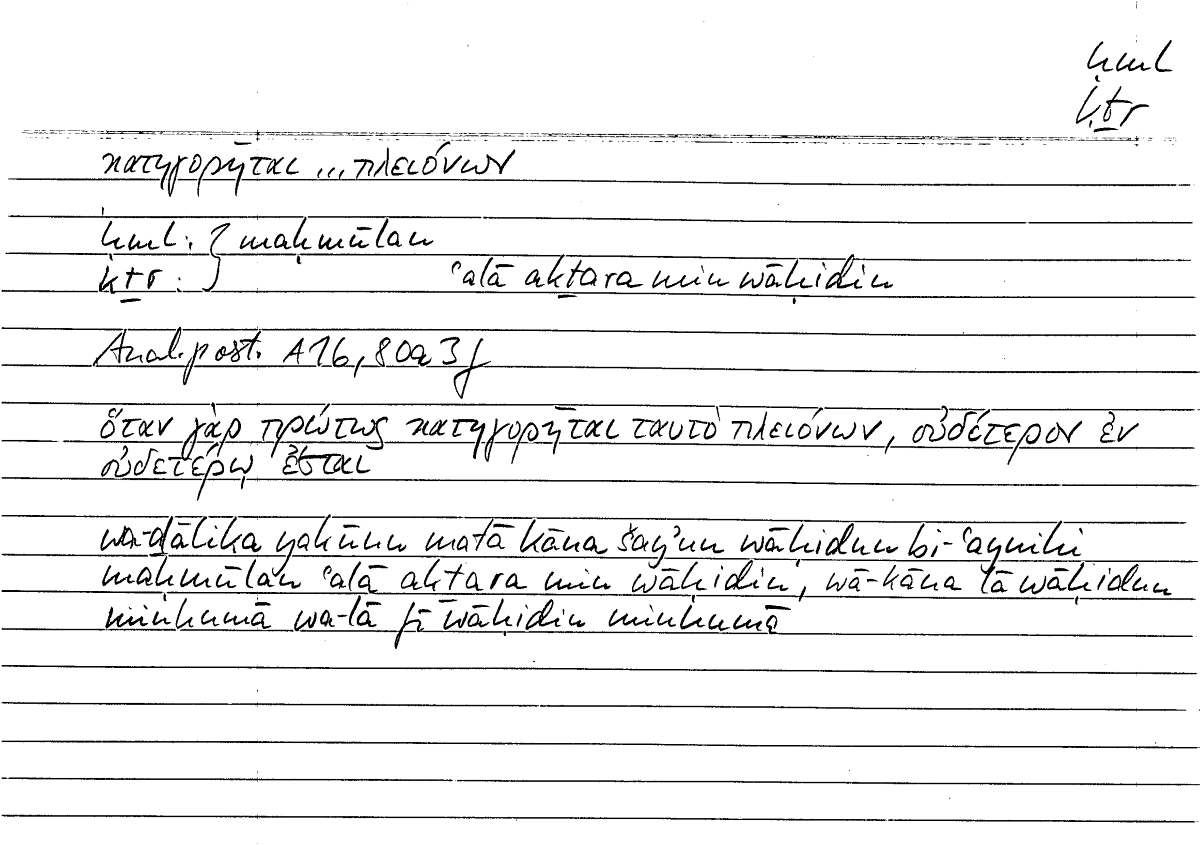 ḥml
kṯr
κατηγορῆται ... πλειόνων
ḥml : } maḥmūlan
kṯr : } ʿalā akṯara min wāḥidin
Anal. post. A 16, 80a 3 f
ὅταν γὰρ πρώτως κατηγορῆται ταυτὸ πλειόνων, οὐδέτερον ἐν
οὐδετέρῳ ἔσται
wa-ḏālika yakūnu matā kāna šayʾun wāḥidun bi-ʿaynihi
maḥmūlan ʿalā akṯara min wāḥidin, wa-kāna lā wāḥidun
minhumā wa-lā fī wāḥidin minhumā